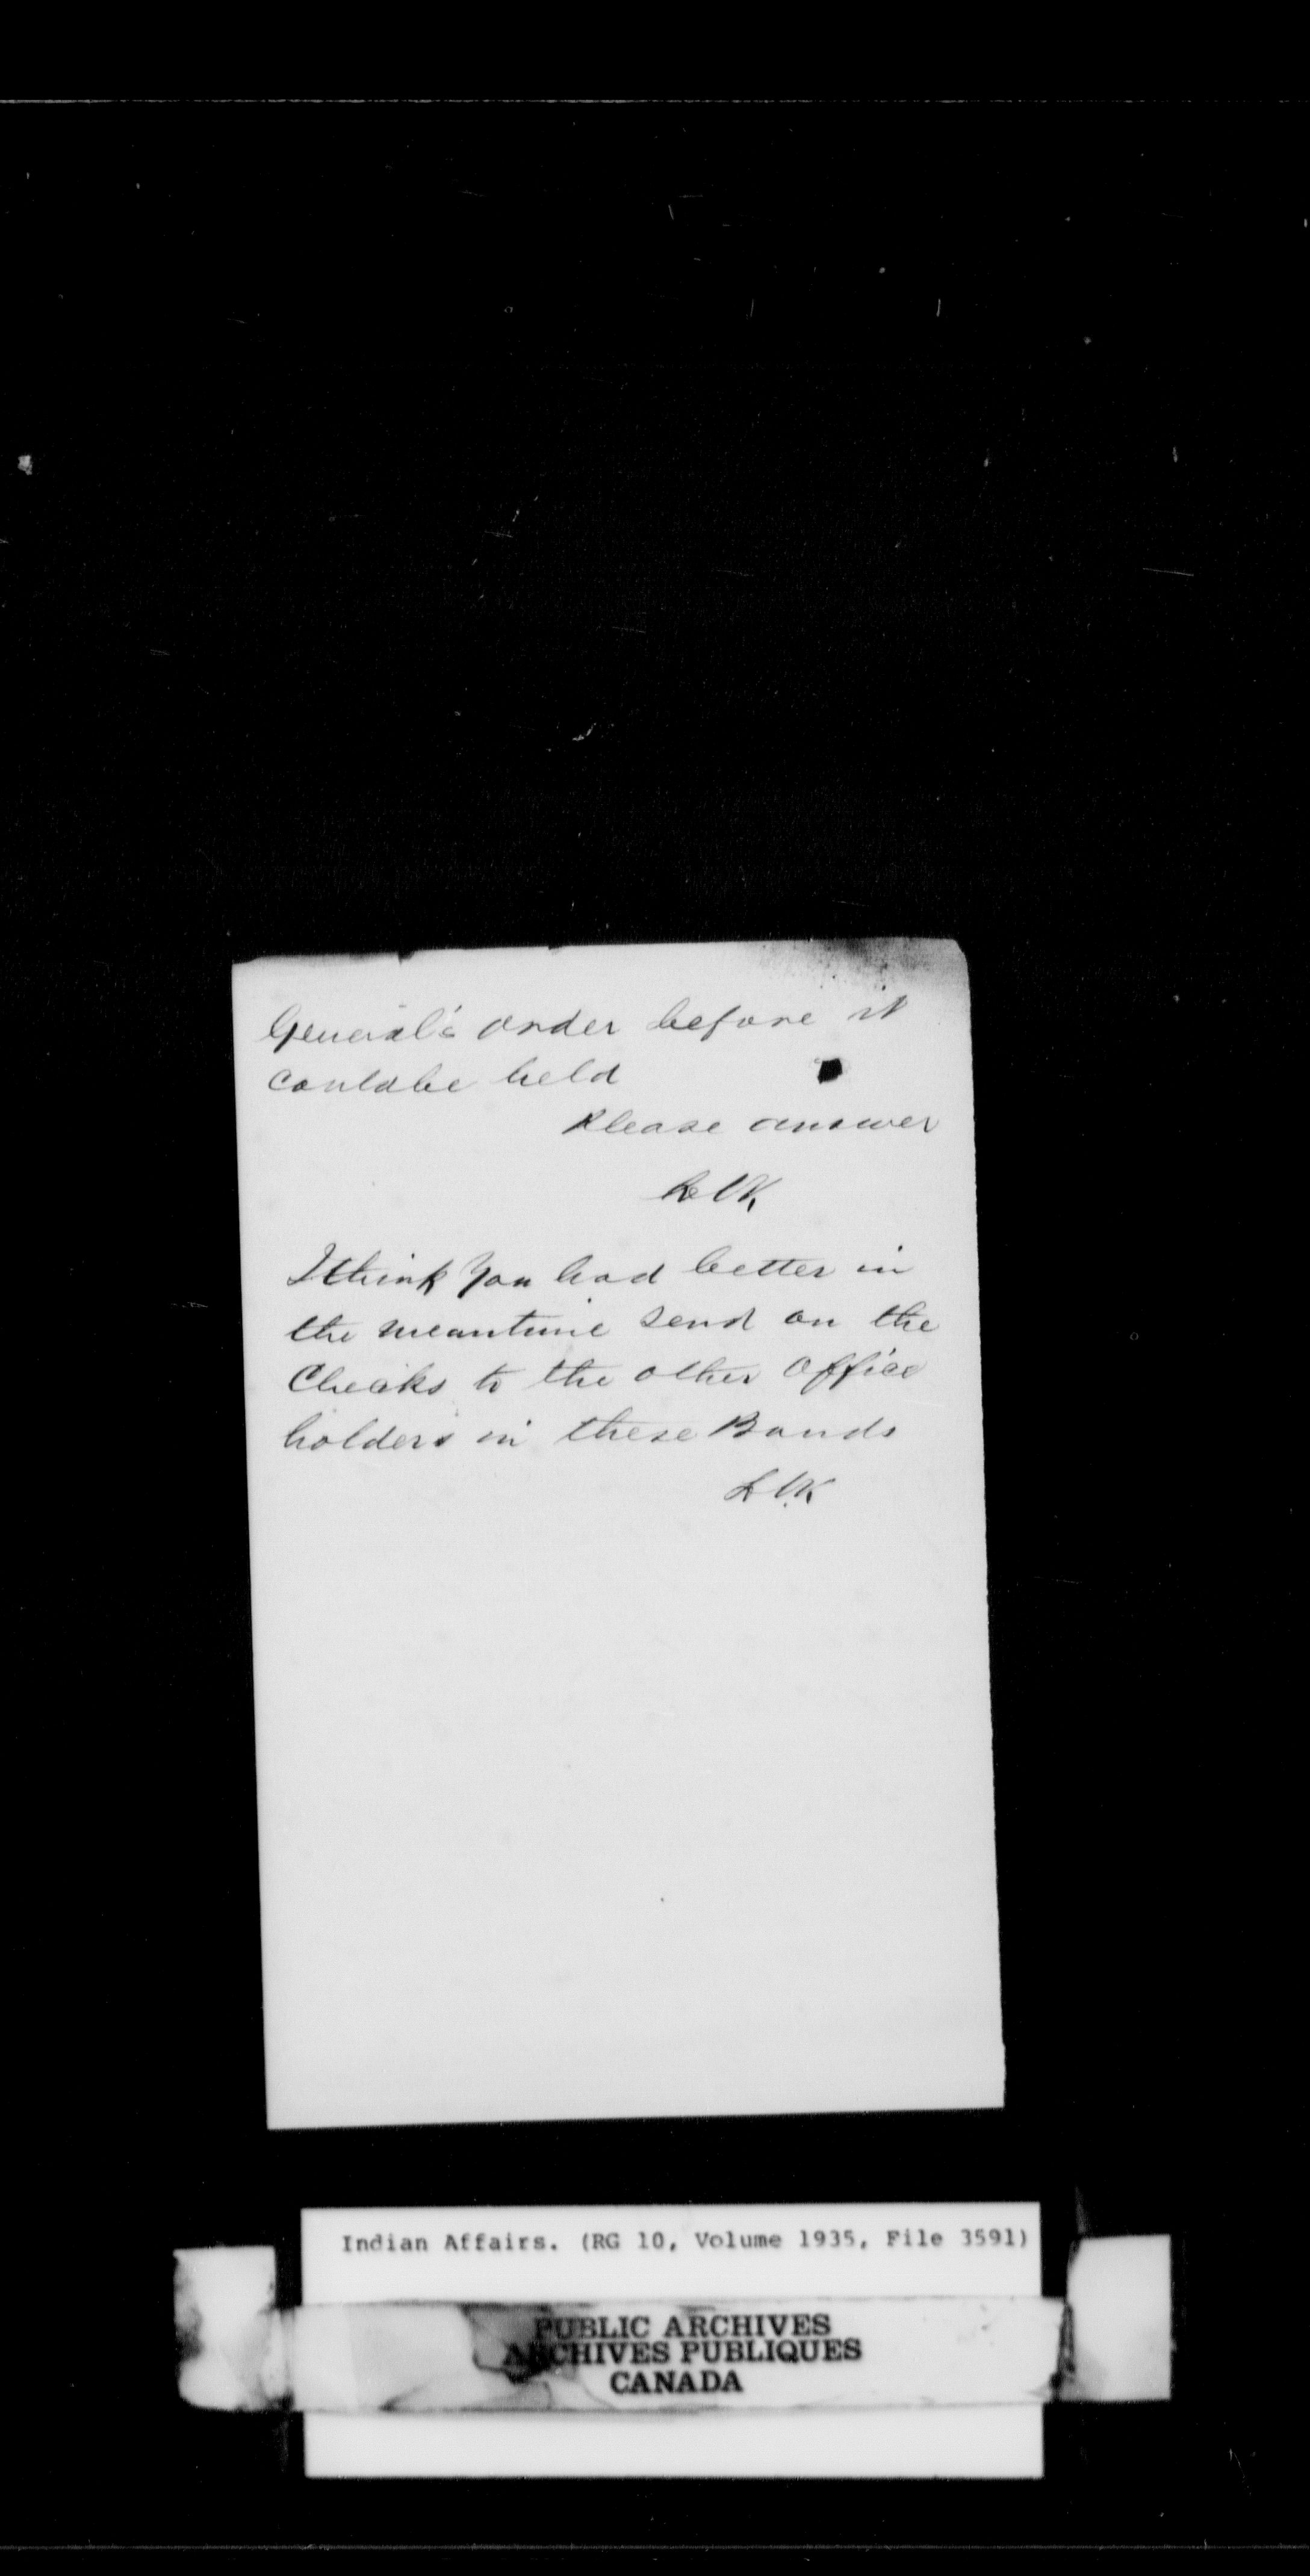 General's order before it
could be held
Please answer
LVK
I think You had better in
the meantime send on the
Checks to the other Office
holders in these Bands
LVK
Indian Affairs. (RG 10, Volume 1935, File 3591)
PUBLIC ARCHIVES
ARCHIVES PUBLIQUES
CANADA